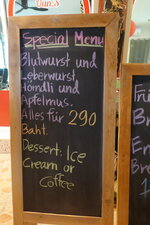 Dan's
Special Menu
Blutwurst und
Leberwurst
Hörndli und
Apfelmus.
Alles für 290
Baht.
Dessert: Ice
Cream or
Coffee
Frü
Br
En
Bre
1